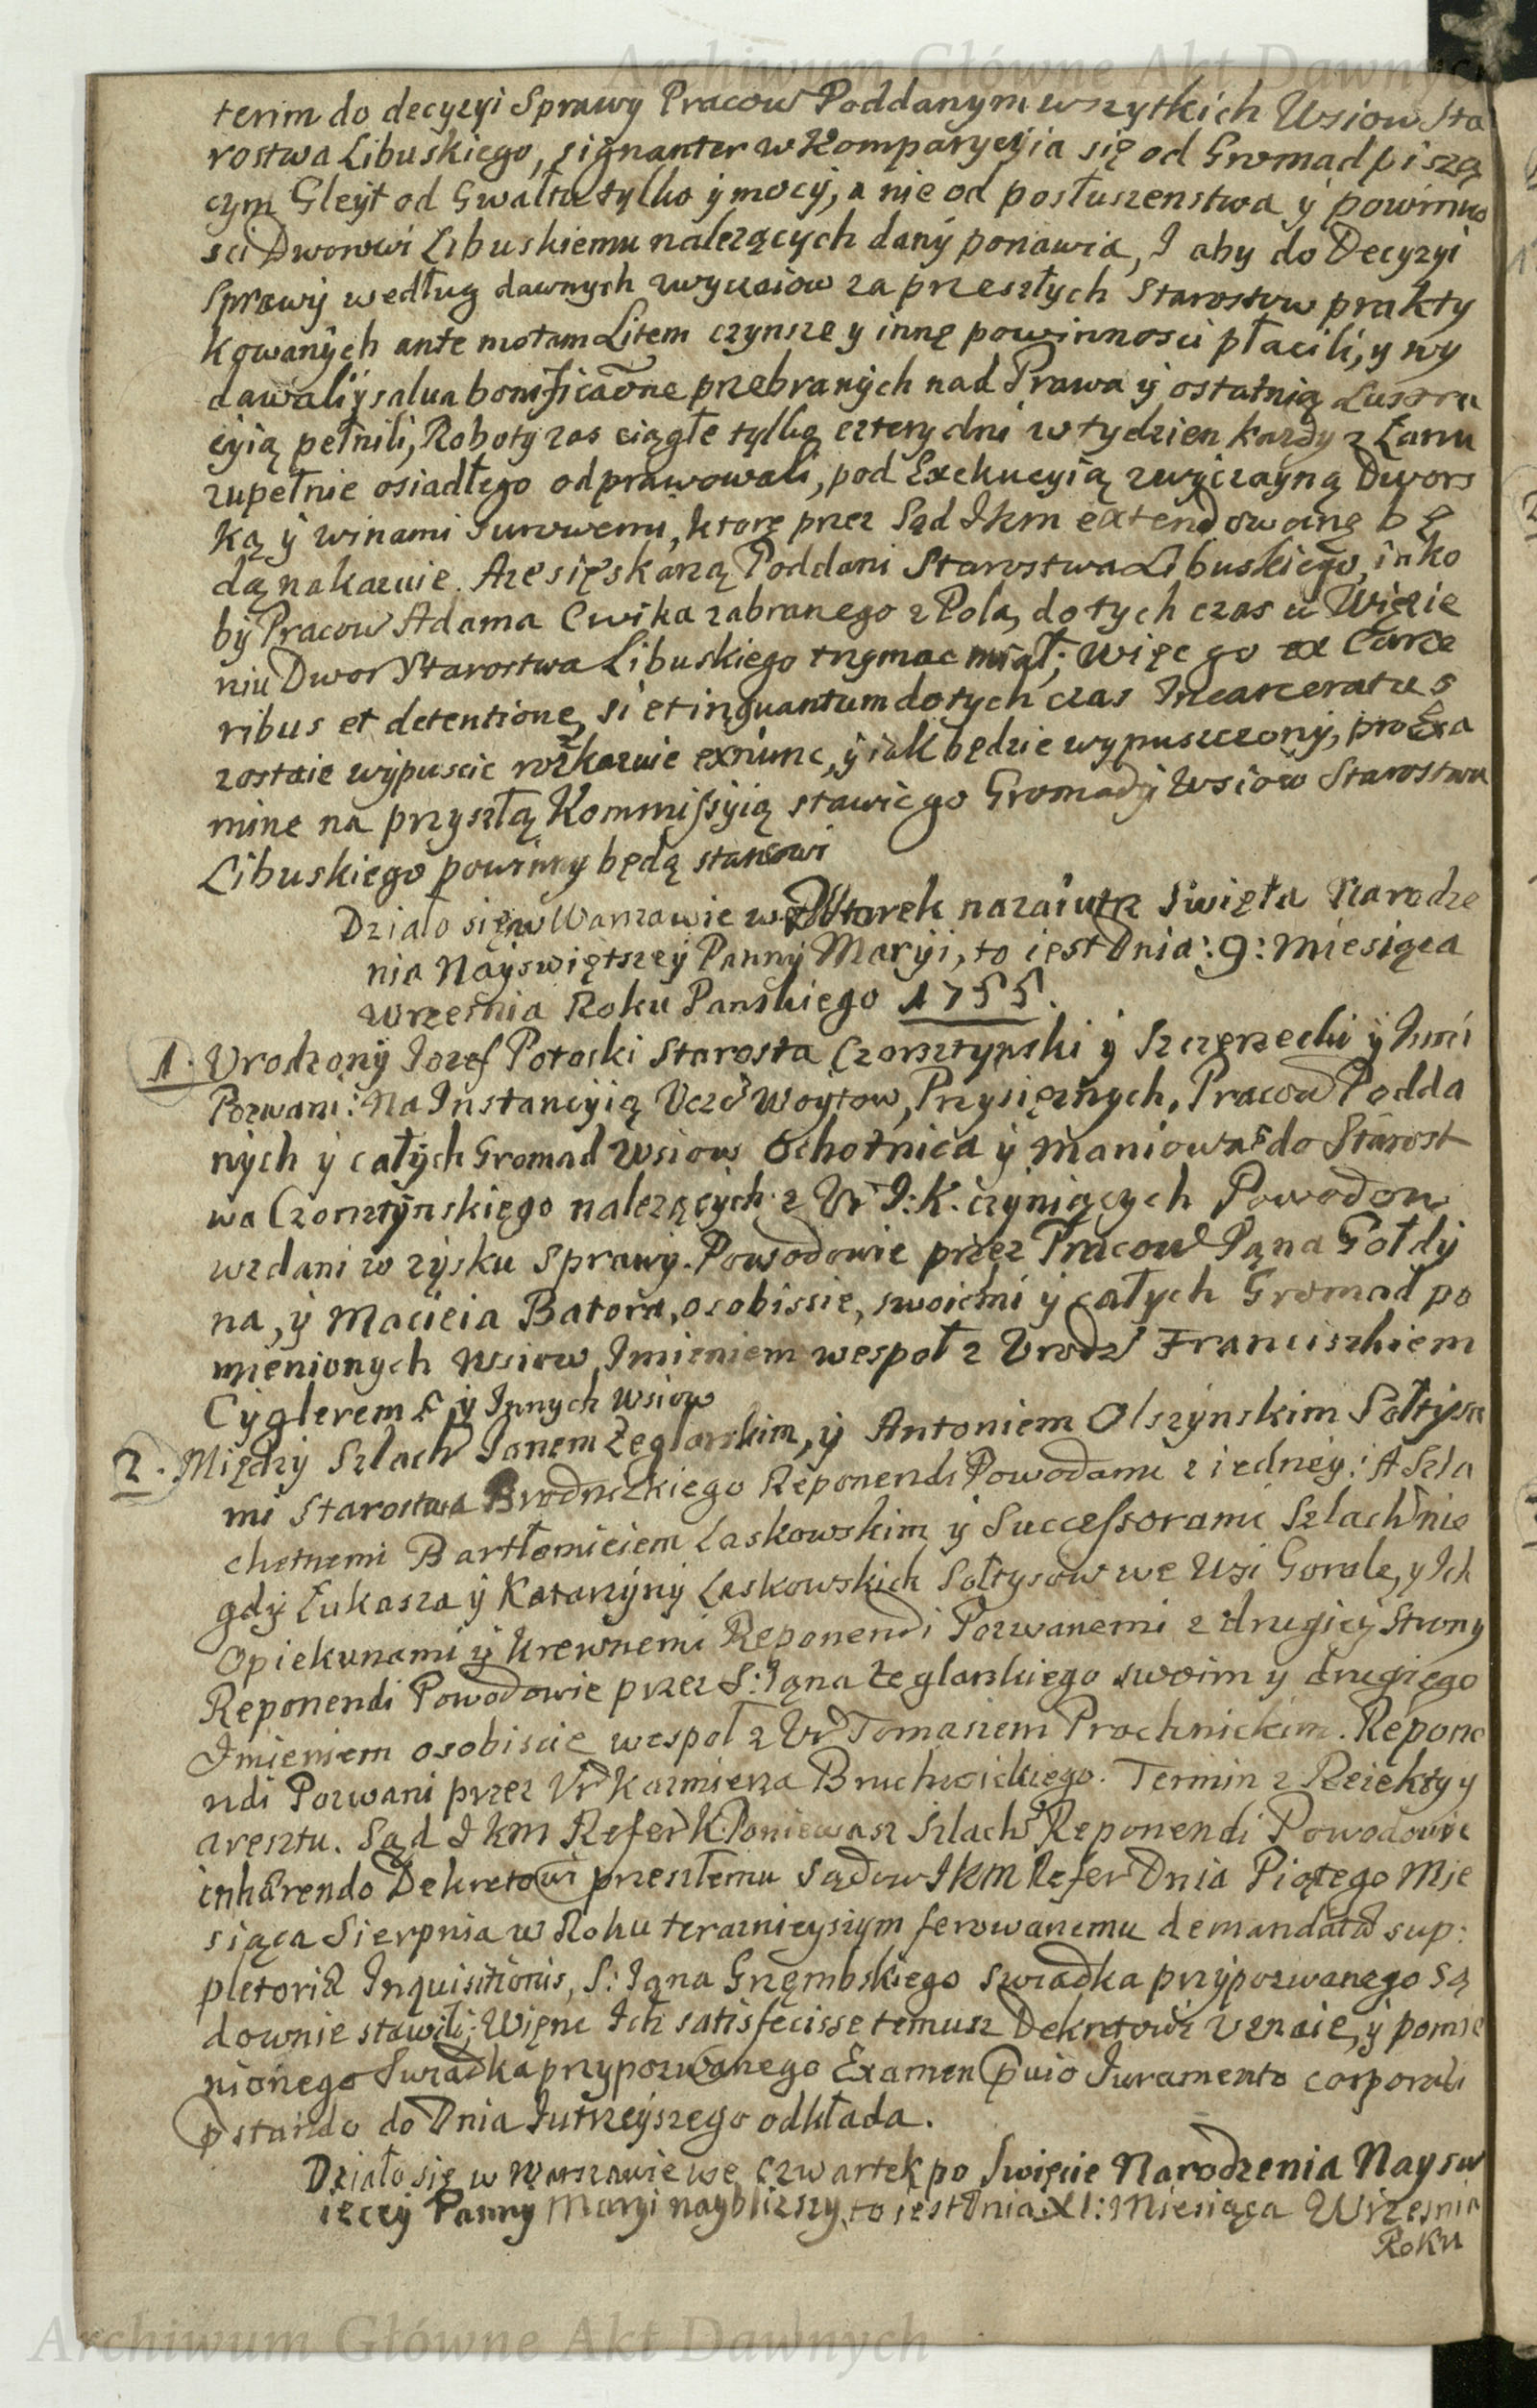 Archiwum Główne Akt Dawnych
terim do decyzyi Sprawy Pracow Poddanym wszytkich Wsiow Sta
rostwa Libuskiego, signanter w Komparycyia się od Gromad piszą
cym Gleyt od Gwałtu tylko y mocy, a nie od posłuszenstwa y powinno
sci Dworowi Libuskiemu nalezących dany ponawia, I aby do Decyzyi
Sprawy według dawnych zwyczaiow za przeszłych Starostow prakty
kowanych ante motam Litem czynsze y inne powinnosci płacili, y wy
dawali y salva bonificaōne przebranych nad Prawa y ostatnią Lustra
cyią pełnili, Roboty zas ciągłe tylko cztery dni w tydzien kazdy z Łanu
zupełnie osiadłego odprawowali, pod Exekucyią zwyczayną Dwors
ką y winami surowemi, ktore przez Sąd Jkm extendowane bę
dą nakazuie. A ze się skarzą Poddani Starostwa Libuskiego, iako
by Pracow Adama Cwika zabranego z Pola, do tych czas w Więzie
niu Dwor Starostwa Libuskiego trzymac miał; Więc go ex Carce
ribus et detentione, si et inquantum do tych czas Incarceratus
zostaie wypuscic rozkazuie exnunc, y iak będzie wypuszczony, pro Exa
mine na przyszłą Kommissyią stawic go Gromady Wsiow Starostwa
Libuskiego powinny będą stanowi
Działo się w Warszawie we Wtorek nazaiutrz Swięta Narodze
nia Nayswiętszey Panny Maryi, to iest Dnia: 9: Miesiąca
Wrzesnia Roku Panskiego 1755.
1. Urodzony Jozef Potocki Starosta Czorsztynski y Szczerzecki y Inni
Pozwani: Na Instancyią Ucz Woytow, Przysięznych, Pracow Podda
nych y całych Gromad Wsiow Ochotnica y Maniowa do Starost
wa Czorsztynskiego nalezących z Ur J: K. czyniących Powodow
wzdani w zysku Sprawy. Powodowie przez Pracow Jana Gołdy
na, y Macieia Batora, osobiscie, swoiemi y całych Gromad po
mienionych Wsiow Imieniem wespoł z Urodz Franciszkiem
Cyglerem y Innych Wsiow
2. Między Szlach Janem Zeglarskim, y Antoniem Olszynskim Sołtysa
mi Starostwa Brodnickiego Reponendi Powodami z iedney: A Szla
chetnemi Bartłomieiem Laskowskim y Successorami Szlach nie
gdy Łukasza y Katarzyny Laskowskich Sołtysow we Wsi Gorale, y Ich
Opiekunami y Krewnemi Reponendi Pozwanemi z drugiey Strony
Reponendi Powodowie przez S: Jana Zeglarskiego swoim y drugiego
Imieniem osobiscie wespoł z Ur Tomaszem Prochnickim. Repone
ndi Pozwani przez Ur Kazmierza Bruchwickiego. Termin z Reiekty y
aresztu. Sąd Jkm Refer K. Poniewasz Szlach Reponendi Powodowie
inhærendo Dekretowi przeszłemu Sądow Jkm Refer Dnia Piątego Mie
siąca Sierpnia w Roku teraznieyszym ferowanemu demandata sup:
pletoria Inquisitionis, S: Jana Grzembskiego swiadka przypozwanego Są
downie stawili; Więc Ich satisfecisse temusz Dekretowi uznaie, y pomie
nionego Swiadka przypozwanego Examen pvio Iuramento corporali
pstando do Dnia Iutrzeyszego odkłada.
Działo się w Warszawie we Czwartek po Swięcie Narodzenia Naysw
ięcey Panny Maryi nayblizszy, to iest Dnia XI: Miesiąca Wrzesnia
Roku
Archiwum Główne Akt Dawnych